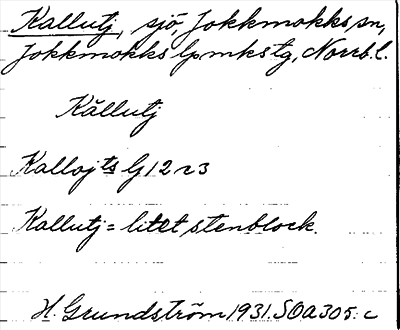 Kallutj, sjö, Jokkmokks sn,
Jokkmokks lpmkstg, Norrb. l.
Kăllutj
Kallajts G 12 r3
Kallutj = litet stenblock.
H. Grundström 1931. SOA 305: c